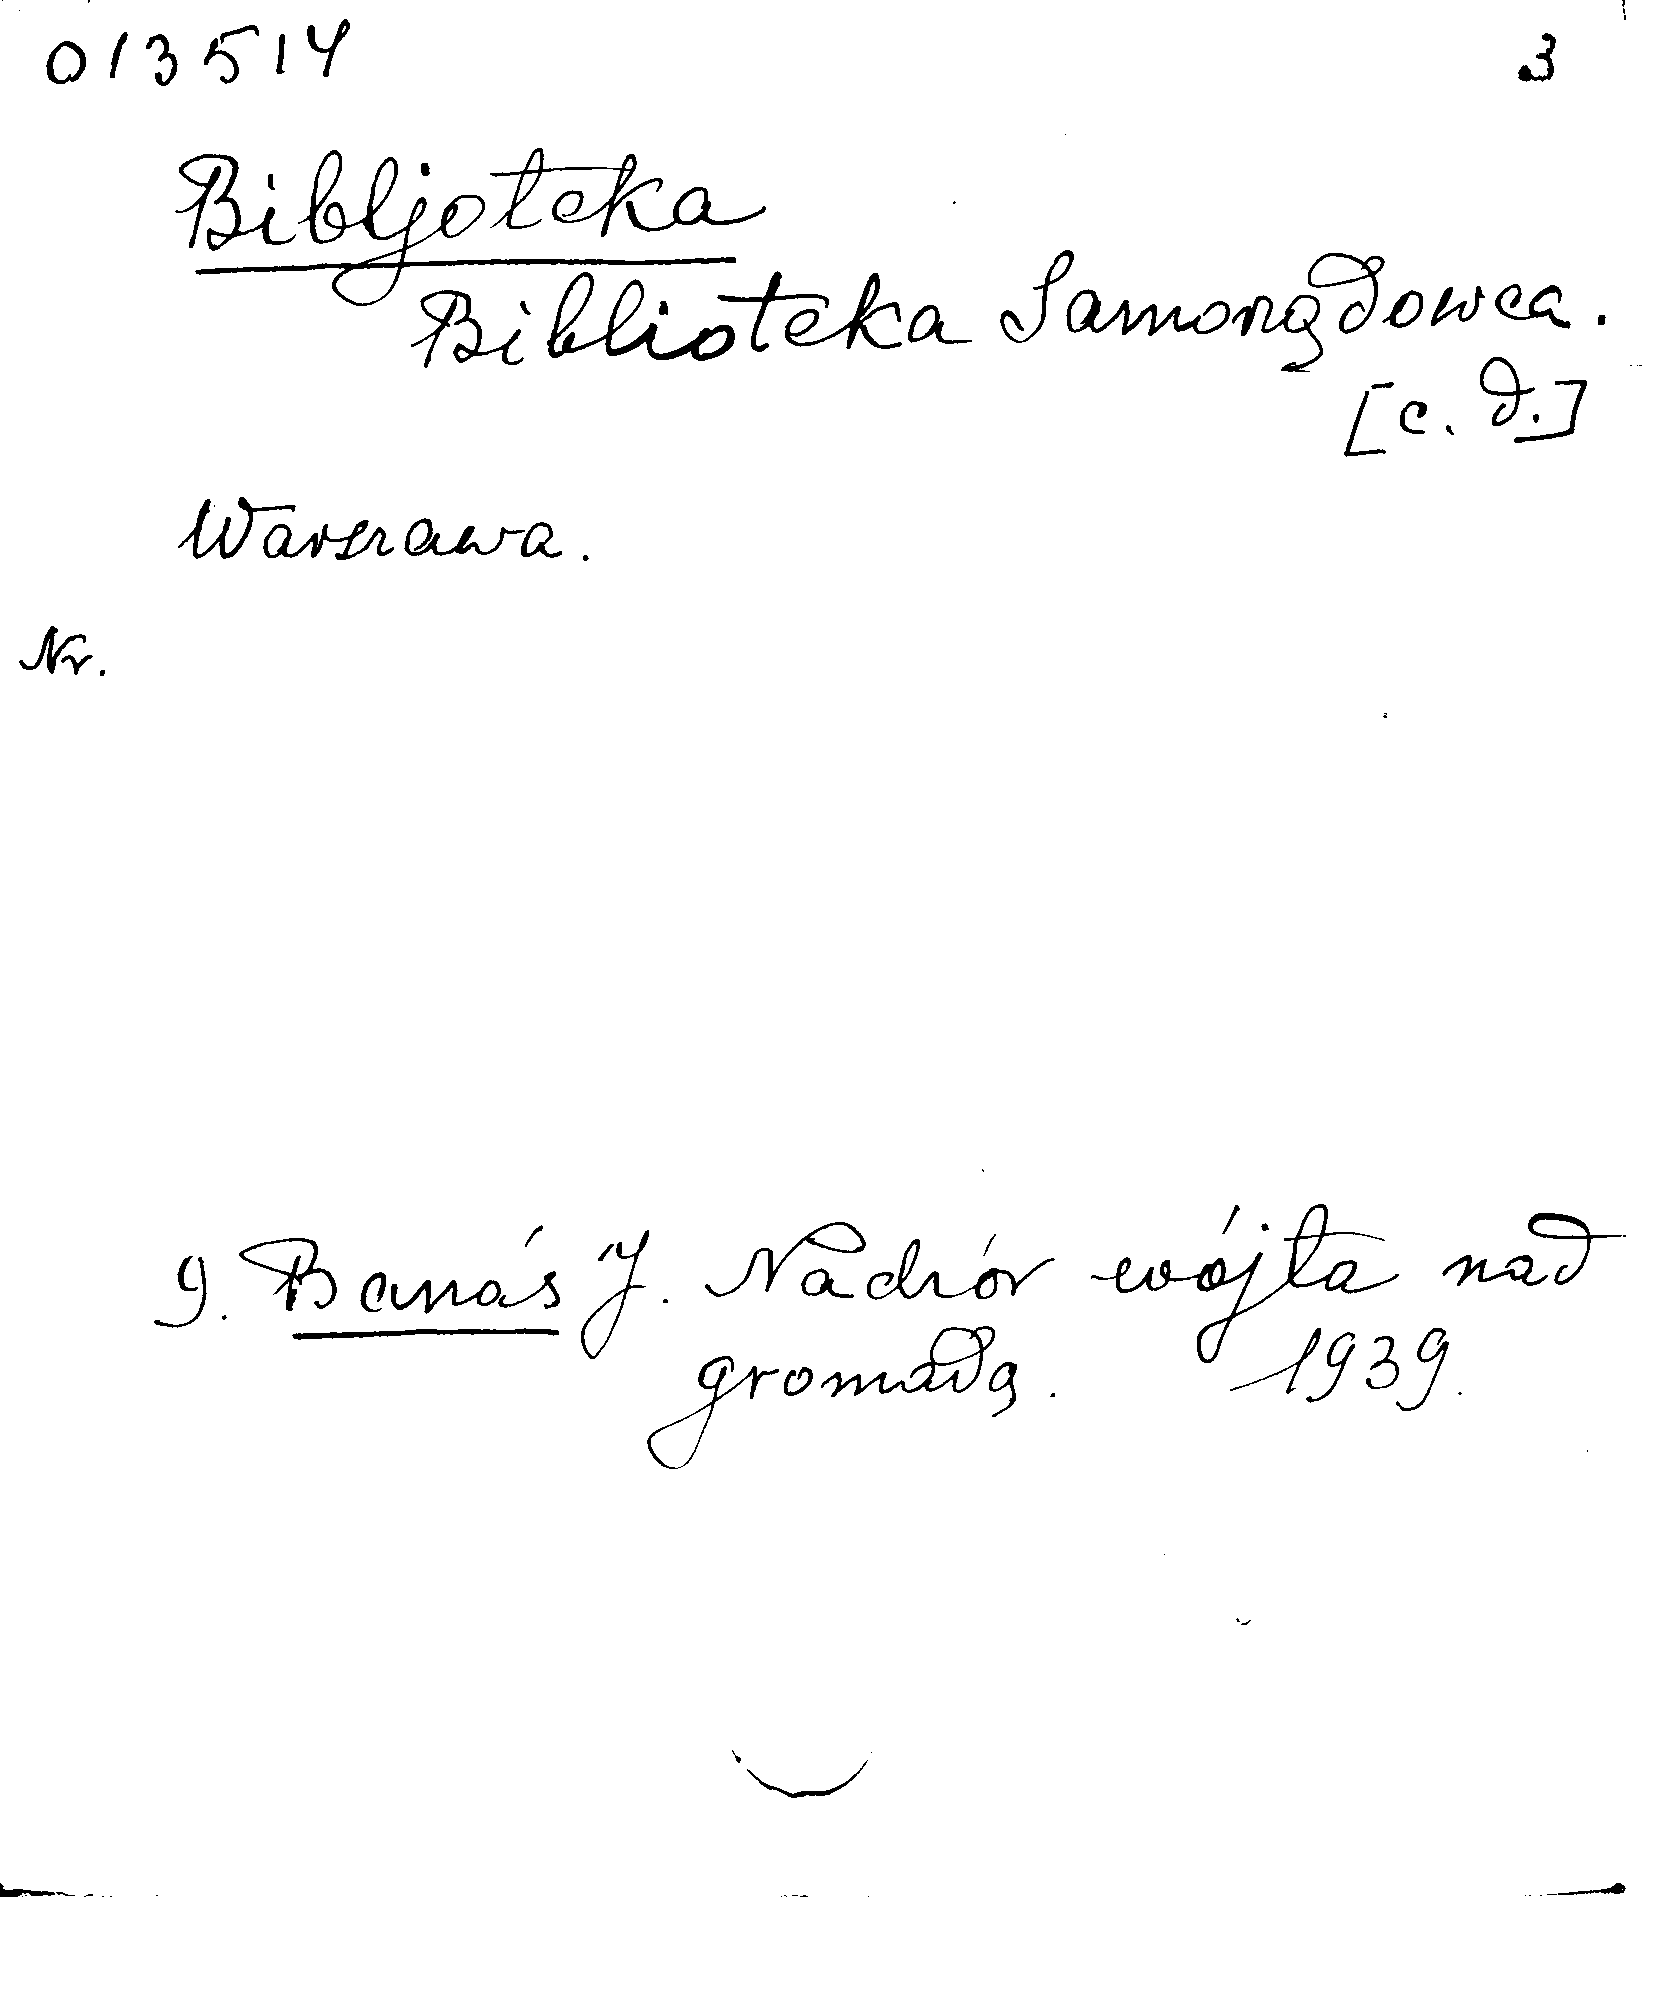 013514 3
Bibljoteka
Biblioteka Samorządowca.
[c. d.]
Warszawa.
Nr.
9. Banaś J. Nadzór wójta nad
gromadą. 1939.